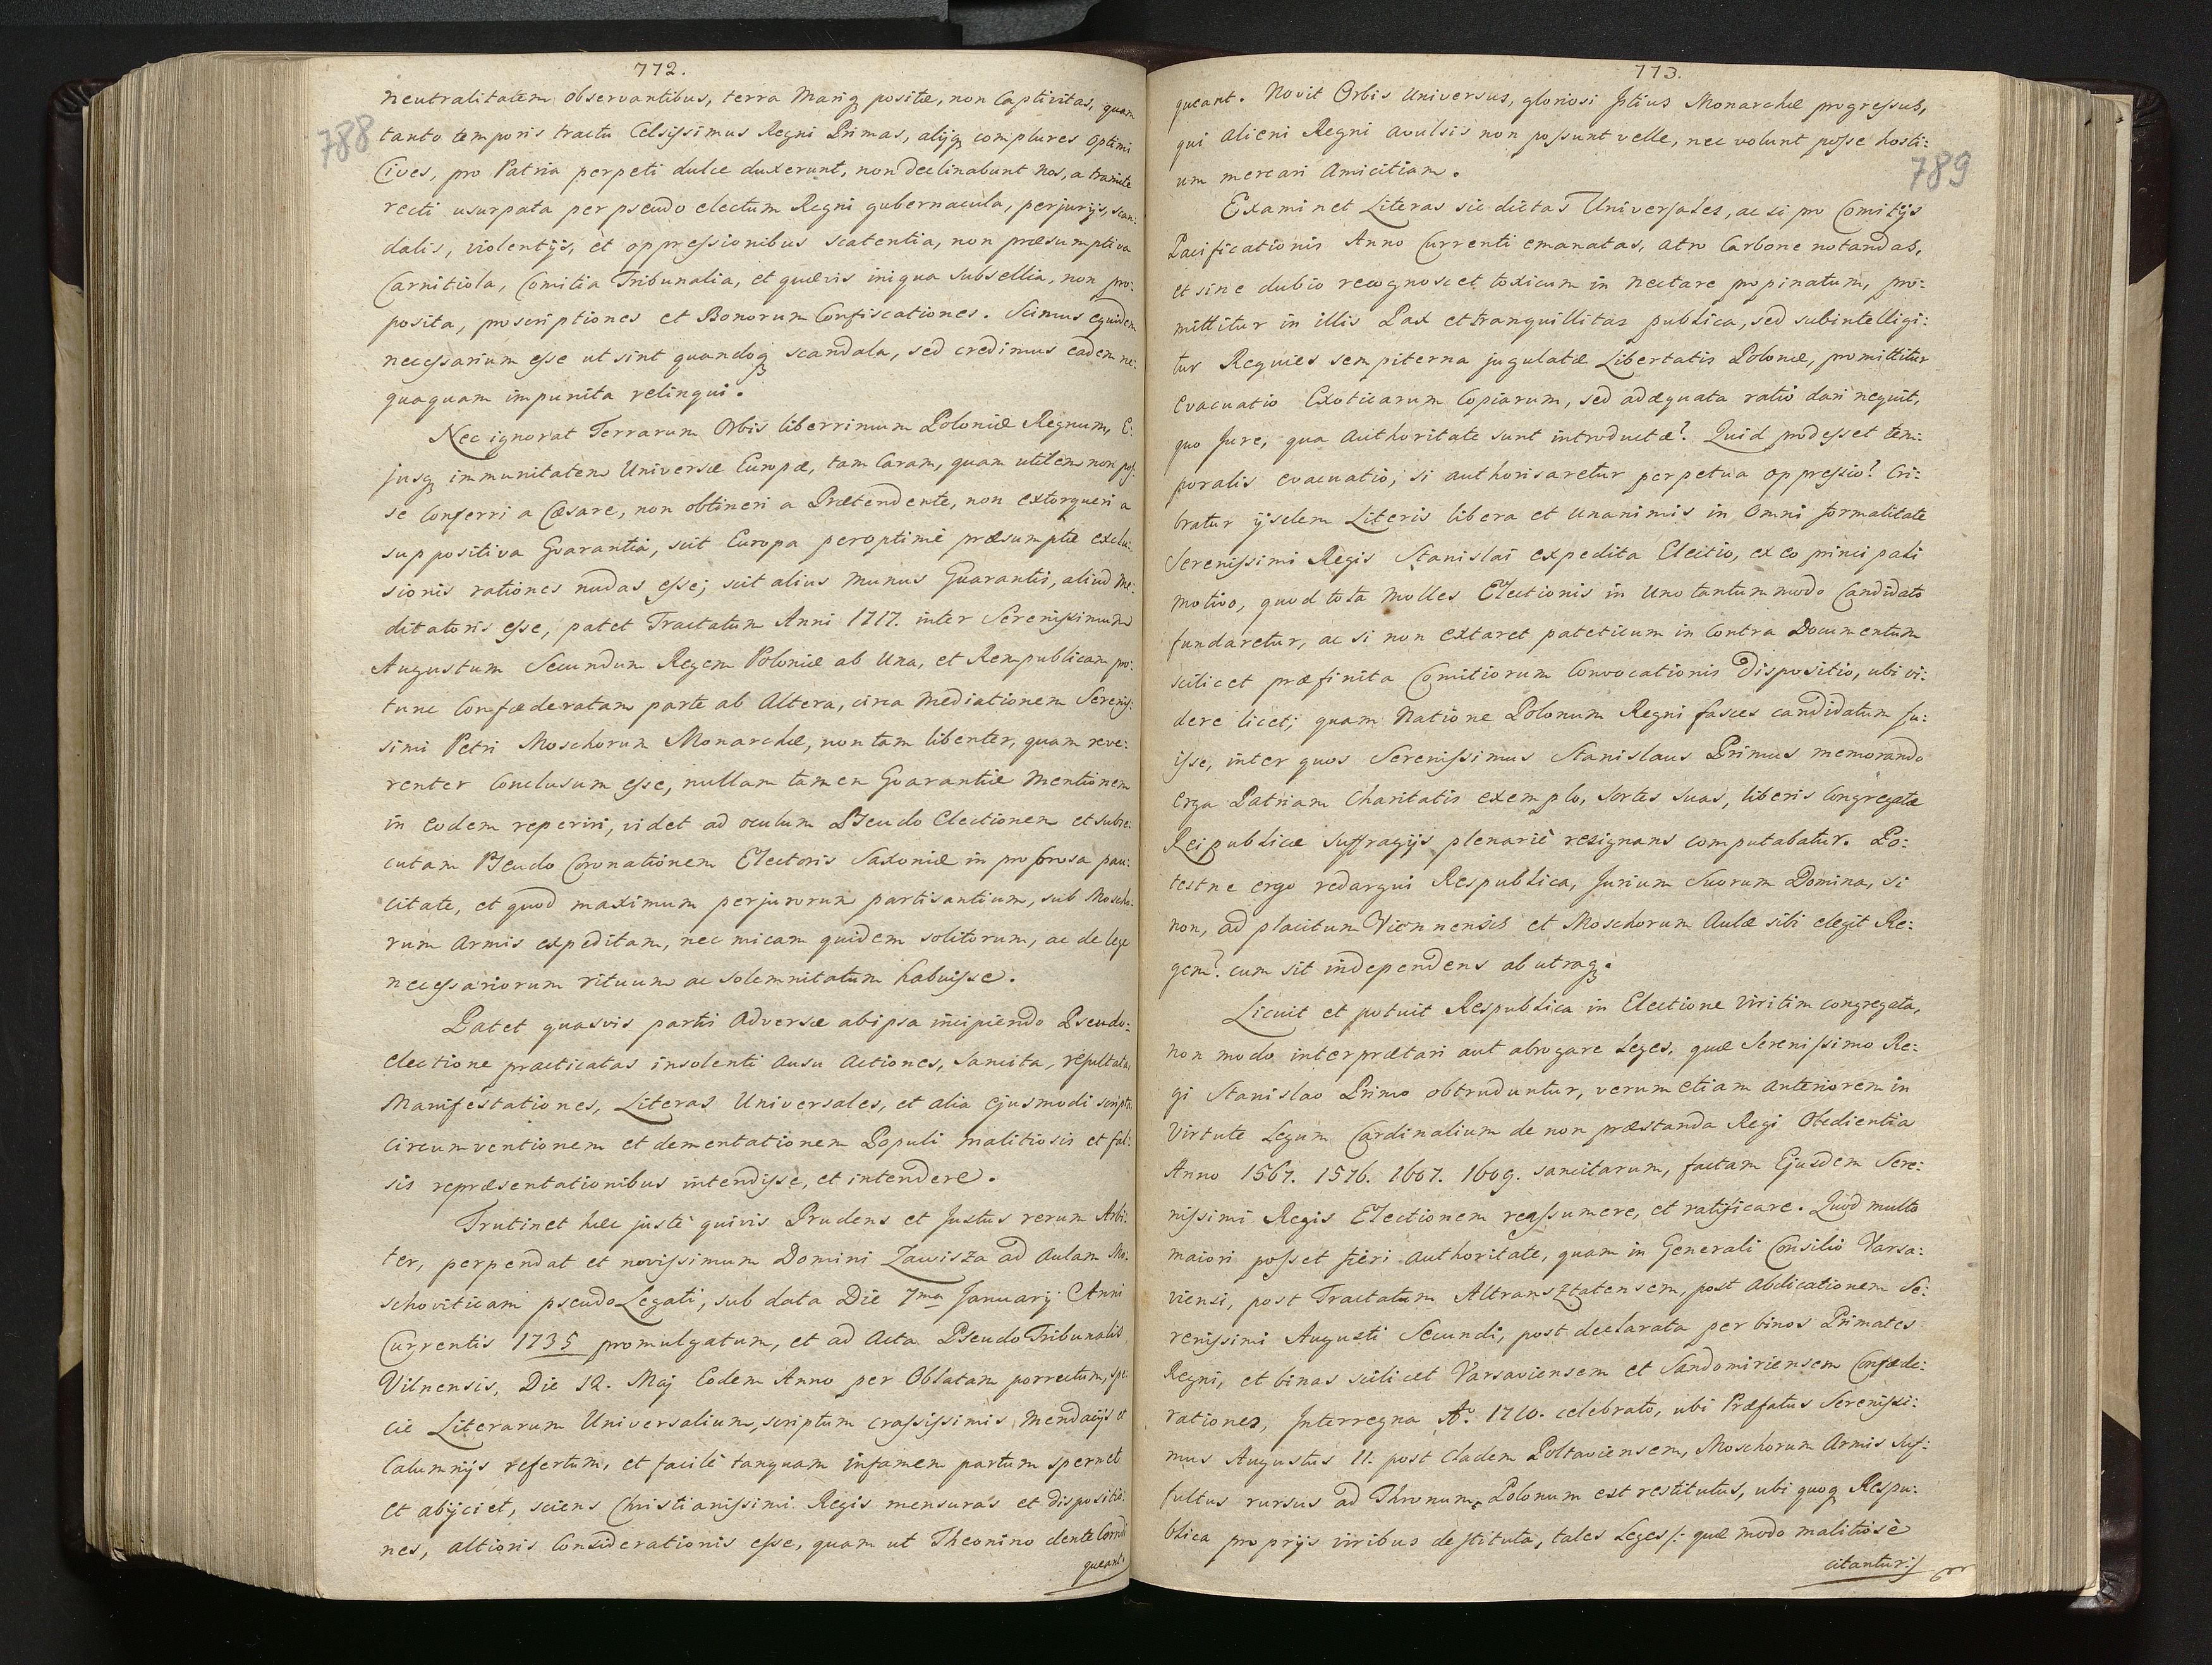 772.
788
neutralitatem observantibus, terra Mariq positæ, non Captivitas, quam
tanto temporis tractu Celsissimus Regni Primas, alijq complures optimi
Cives, pro Patria perpeti dulce duxerunt, non declinabunt nos, a tramite
recti usurpata per pseudo electum Regni gubernacula, perjurijs, scan:
dalis, violentijs, et oppressionibus scatentia, non præsumptiva
Carnitiola, Comitia Tribunalia, et quævis iniqua subsellia, non pro:
posita, proscriptiones et Bonorum Confiscationes. Scimus equidem
necessarium esse ut sint quandoq scandala, sed credimus eadem ne:
quaquam impunita relinqui.
Nec ignorat Terrarum Orbis liberrimum Poloniæ Regnum, E:
jusq immunitatem Universæ Europæ, tam Caram, quam utilem non pos:
se Conferri a Cæsare, non obtineri a Prætendente, non extorqueri a
suppositiva Gvarantia, scit Europa peroptimè præsumptæ exclu:
sionis rationes nudas esse; scit alius munus Guarantis, aliud Me:
ditatoris esse, patet Tractatum Anni 1717. inter Serenissimum
Augustum Secundum Regem Poloniæ ab Una, et Rempublicam pro:
tunc Confæderatam parte ab Altera, circa Mediationem Serenis:
simi Petri Moschorum Monarchæ, non tam libenter, quam reve:
renter Conclusum esse, nullam tamen Gvarantiæ Mentionem
in eodem reperiri, videt ad oculum Pseudo Electionem et subse:
cutam Pseudo Coronationem Electoris Saxoniæ in probrosa pau:
citate, et quod maximum perjurorum partisantium, sub Moscho:
rum Armis expeditam, nec micam quidem solitorum, ac de lege
necessariorum rituum ac solemnitatum habuisse.
Patet quasvis partis Adversæ ab ipsa incipiendo Pseudo:
electione practicatas insolenti Ausu Actiones, Sancita, resultata,
Manifestationes, Literas Universales, et alia ejusmodi scripta
circumventionem et dementationem Populi malitiosis et fal:
sis repræsentationibus intendisse, et intendere.
Trutinet hæc justè quivis Prudens et Justus rerum Arbi:
ter, perpendat et novissimum Domini Zawisza ad Aulam Mo:
schoviticam pseudo Legati, sub data Die 7ma Januarij Anni
Currentis 1735 promulgatum, et ad Acta Pseudo Tribunalis
Vilnensis, Die 12. Maj Eodem Anno per Oblatam porrectum, spe
cie Literarum Universalium, scriptum crassissimis mendacijs et
Calumnijs refertum, et facilè tanquam infamem partum spernet
et abijciet, sciens Christianissimi Regis mensuras et dispositio:
nes, altioris Considerationis esse, quam ut Theonino dente Corrodi
queant.
773.
789
queant. Novit Orbis Universus, gloriosi Istius Monarchæ progressus,
qui alieni Regni avulsis non possunt velle, nec volunt posse hosti:
um mercari Amicitiam.
Examinet Literas sic dictas Universales, ac si pro Comitijs
Pacificationis Anno Currenti emanatas, atro Carbone notandas,
et sine dubio recognoscet toxicum in nectare propinatum, pro:
mittitur in illis Pax et tranquillitas publica, sed subintelligi:
tur Requies sempiterna jugulatæ Libertatis Polonæ, promittitur
Evacuatio Exoticarum Copiarum, sed adæquata ratio dari nequit,
quo Jure, qua Authoritate sunt introductæ? Quid prodesset tem:
poralis evacuatio, si authorisaretur perpetua oppressio? Cri:
bratur ijsdem Literis libera et Unanimis in Omni formalitate
Serenissimi Regis Stanislai expedita Electio, ex eo principali
motivo, quod tota Molles Electionis in Uno tantummodo Candidato
fundaretur, ac si non extaret pateticum in Contra Documentum
scilicet præfinita Comitiorum Convocationis Dispositio, ubi vi:
dere licet; quam Natione Polonum Regni fasces candidatum fu:
isse, inter quos Serenissimus Stanislaus Primus memorando
Erga Patriam Charitatis exemplo, sortes suas, liberis Congregatæ
Reipublicæ suffragijs plenariè resignans computabatur. Po:
testne ergo redargui Respublica, Jurium Suorum Domina, si
non, ad placitum Viennensis et Moschorum Aulæ sibi elegit Re:
gem? cum sit independens ab utraq.
Licuit et potuit Respublica in Electione Viritim congregata,
non modo interprætari aut abrogare Leges, quæ Serenissimo Re:
gi Stanislao Primo obtruduntur, verum etiam anteriorem in
Virtute Legum Cardinalium de non præstanda Regi Obedientia
Anno 1567. 1576. 1607. 1609. sancitarum, factam Ejusdem Sere:
nissimi Regis Electionem reassumere, et ratificare. Quod multo
maiori posset fieri Authoritate, quam in Generali Consilio Varsa:
viensi, post Tractatum Altransztatensem, post abdicationem Se:
renissimi Augusti Secundi, post declarata per binos Primates
Regni, et binas scilicet Varsaviensem et Sandomiriensem Confæde:
rationes, Interregna Ao. 1710. celebrato, ubi Præfatus Serenissi:
mus Augustus II. post Cladem Poltaviensem, Moschorum Armis suf:
fultus rursus ad Thronum Polonum est restitutus, ubi quoq Respu:
blica proprijs viribus destituta, tales Leges /: quæ modo malitiosè
citantur:/